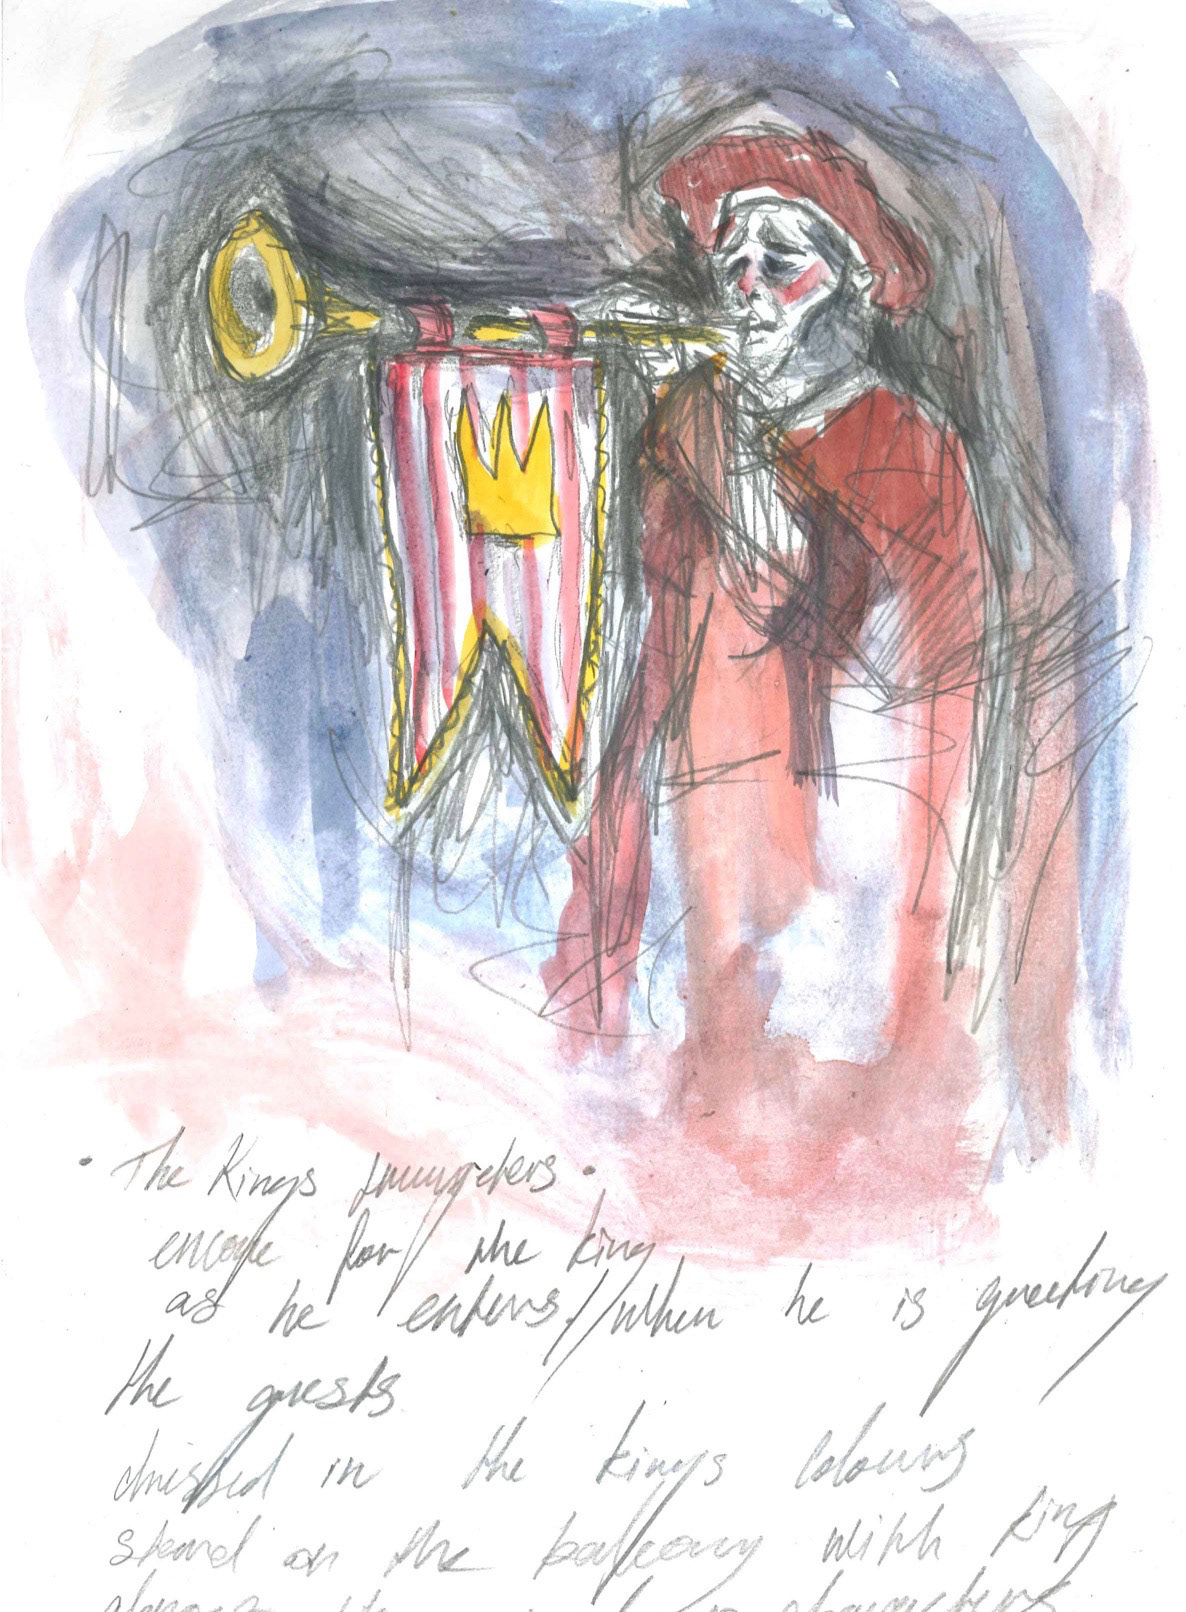 • The Kings trumpeters •
encore for the king
as he enters / when he is greeting
the guests
dressed in the kings colours
stand on the balcony with king